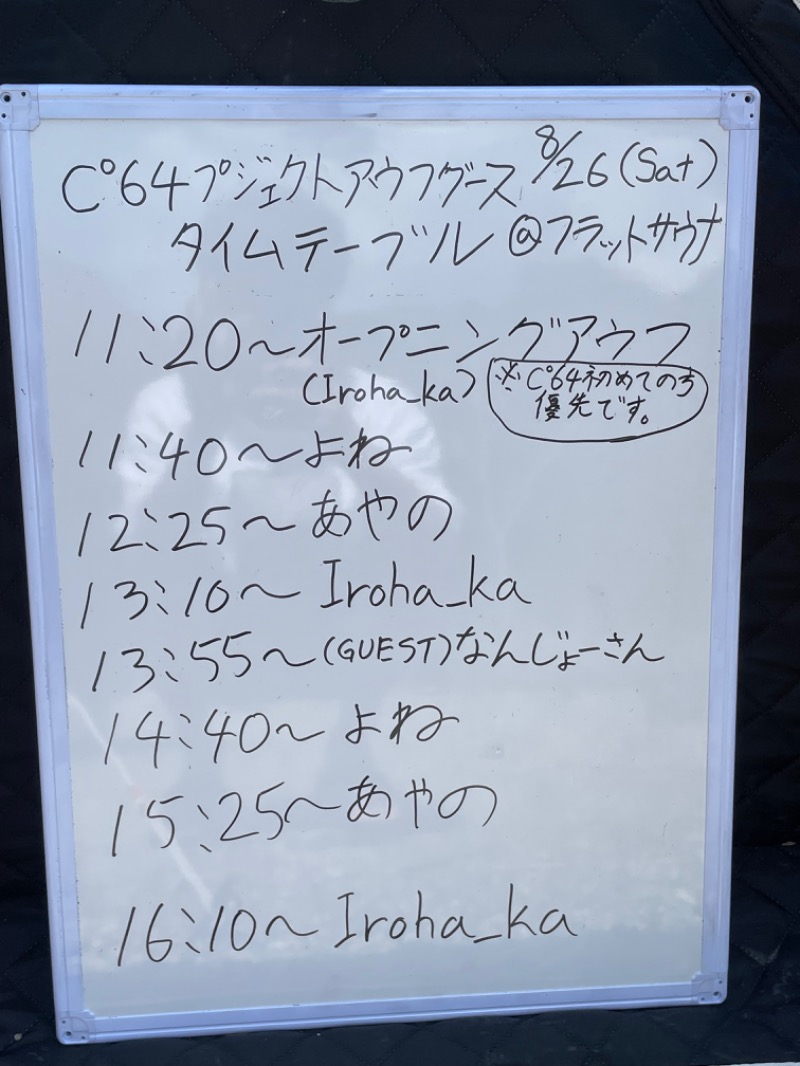 C°64プジェクトアウフグース 8/26(Sat)
タイムテーブル @フラットサウナ
11:20～オープニングアウフ
(Iroha_ka)
※C°64初めての方
優先です。
11:40～よね
12:25～あやの
13:10～Iroha_ka
13:55～(GUEST)なんじょーさん
14:40～よね
15:25～あやの
16:10～Iroha_ka